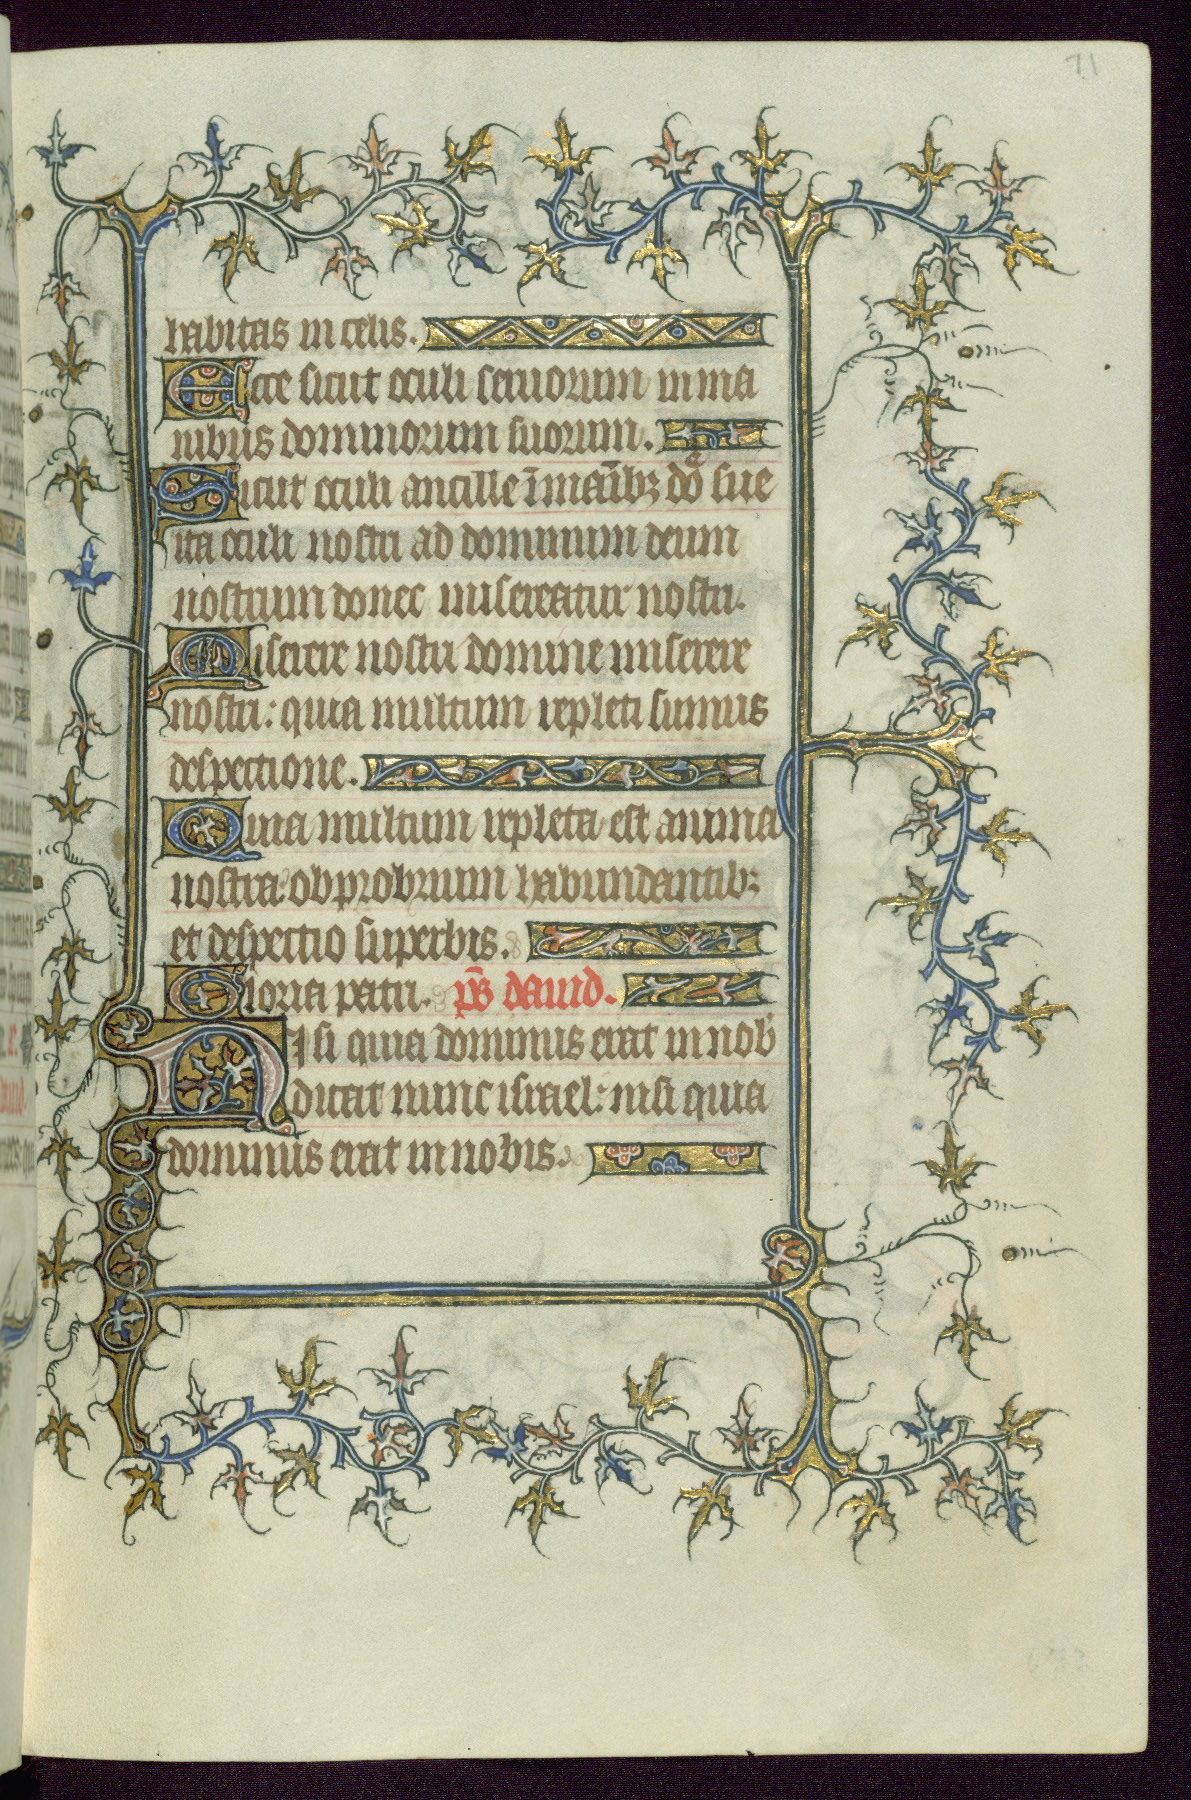 71
habitas in celis.
Ecce sicut oculi seruorum in ma
nibus dominorum suorum.
Sicut oculi ancille ī manib; dō sue
ita oculi nostri ad dominum deum
nostrum donec misereatur nostri.
Miserere nostri domine miserere
nostri: quia multum repleti sumus
despectione.
Quia multum repleta est anima
nostra: obprobrium habundantib;
et despectio superbis.
Gloria patri. p̄s dauid.
Nisi quia dominus erat in nob
dicat nunc israel: nisi quia
dominus erat in nobis.